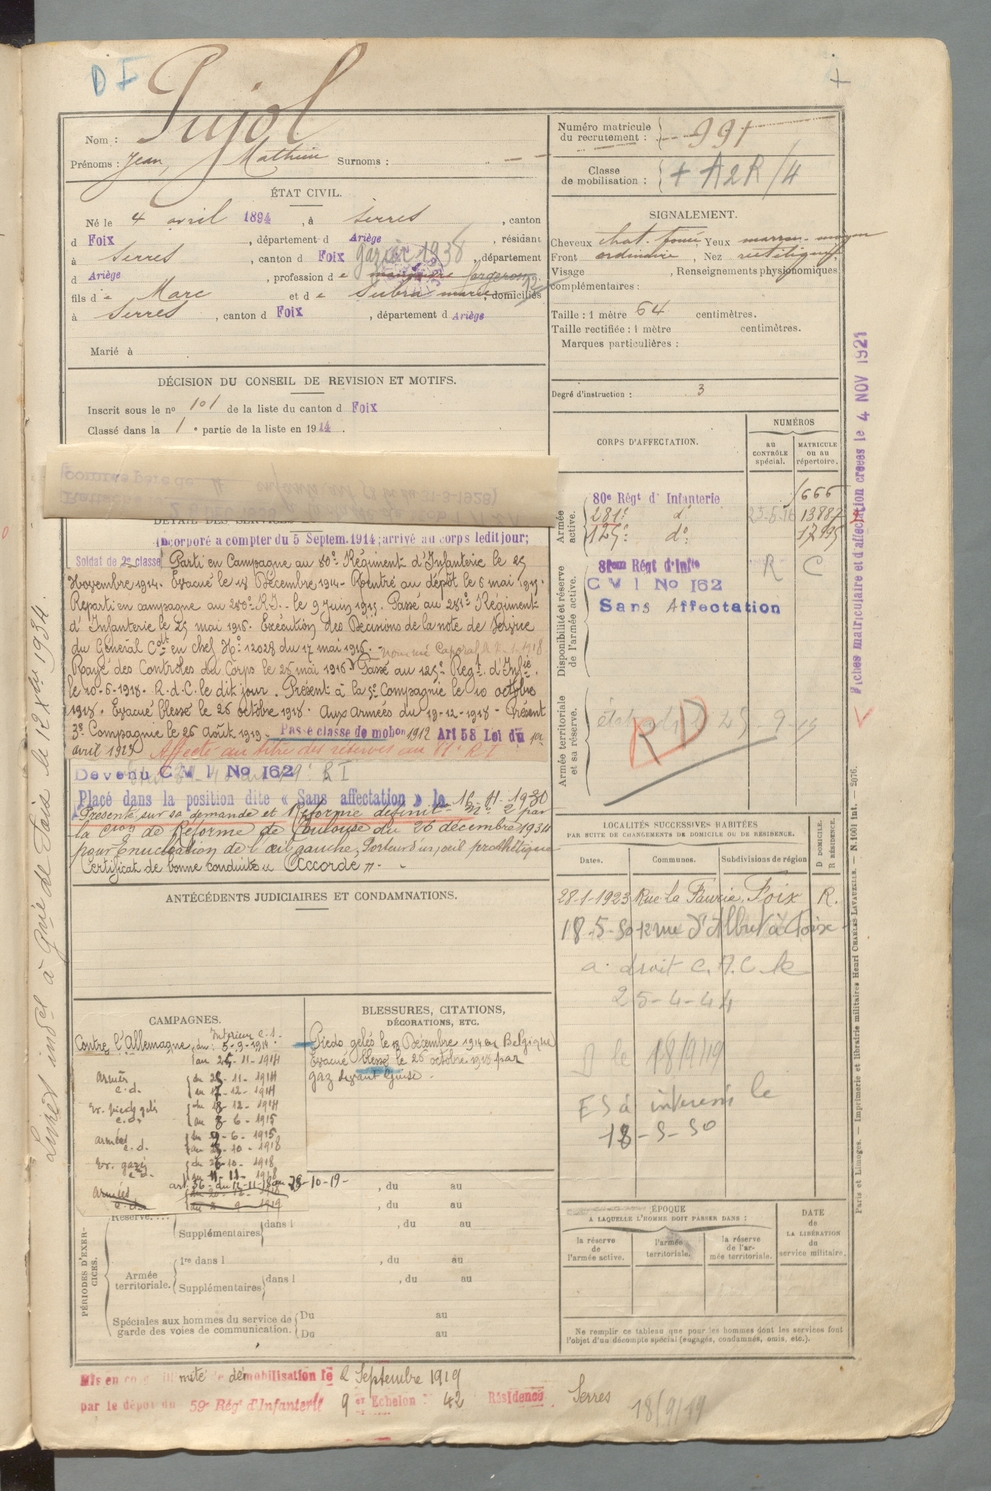 D I
Pujol
Nom :
Prénoms : Jean, Mathieu Surnoms :
Numéro matricule du recrutement : 991
Classe de mobilisation : + A2R/4
ÉTAT CIVIL.
Né le 4 avril 1894, à Serres, canton
d Foix, département d Ariège, résidant
à Serres, canton d Foix, département
d Ariège, profession de forgeron
fils de Marc et de Subra marie, domiciliés
à Serres, canton d Foix, département d Ariège
Marié à
SIGNALEMENT.
Cheveux chat. foncé Yeux marron moyen
Front ordinaire, Nez rectiligne
Visage , Renseignements physionomiques
complémentaires :
Taille : 1 mètre 64 centimètres.
Taille rectifiée : 1 mètre centimètres.
Marques particulières :
Degré d'instruction : 3
DÉCISION DU CONSEIL DE REVISION ET MOTIFS.
Inscrit sous le no 101 de la liste du canton d Foix
Classé dans la 1e partie de la liste en 1914.
DÉTAIL DES SERVICES
Incorporé a compter du 5 Septem. 1914; arrivé au corps ledit jour;
Soldat de 2e classe Parti en Campagne au 80e Régiment d'Infanterie le 25
Novembre 1914. Evacué le 18 Décembre 1914. Rentré au dépôt le 6 mai 1915.
Reparti en campagne au 280e R.I. le 9 Juin 1915. Passé au 281e Régiment
d'Infanterie le 25 mai 1916. Exécution des Décisions de la note de Service
du Général Ct en chef No 12028 du 17 mai 1916. nommé Caporal
Rayé des Contrôles du Corps le 25 mai 1916 Passé au 125e Regt. d'Infie
le 20-6-1918. R.d.C. le dit jour. Présent à la 5e Compagnie le 10 octobre
1918. Evacué blessé le 26 octobre 1918. Aux Armées du 19-12-1918. Présent
3e Compagnie le 26 Août 1919. Passé classe de mobon 1912 Art 58 Loi du 1er
avril 1923 Affecté au titre des réserves au 81e R I
Devenu C M I No 162
Placé dans la position dite « Sans affectation » le
Présenté sur sa demande et Réformé définitif
la Cion de Réforme de Toulouse du 26 décembre 1934
pour Enucléation de l'œil gauche, Porteur d'un œil prothétique
Certificat de bonne conduite « Accordé ».
CORPS D'AFFECTATION.
NUMÉROS
AU CONTRÔLE spécial.
MATRICULE OU AU répertoire.
Armée active.
80e Régt d'Infanterie 1666
281e do 13887
125e do
Disponibilité et réserve de l'armée active.
81eme Régt d'Infie R C
C M I No 162
Sans Affectation
Armée territoriale et sa réserve.
RD
Fiches matriculaire et d'affectation créées le 4 NOV 1921
Livret indel à
ANTÉCÉDENTS JUDICIAIRES ET CONDAMNATIONS.
LOCALITÉS SUCCESSIVES HABITÉES
PAR SUITE DE CHANGEMENTS DE DOMICILE OU DE RÉSIDENCE.
D DOMICILE. R RÉSIDENCE.
Dates. Communes. Subdivisions de région
28-1-1923 Rue La Faurie, Foix R.
18-5-50 12 rue d'Albret à Foix
a droit C.A.C. le
25-4-44
D le 18/9/19
ES à interessé le
18-5-50
CAMPAGNES.
Contre l'Allemagne,
Intérieur c.s. du 5-9-1914
au 25-11-1914
armées c.d.
Ev. pieds gelés
armées c.d.
Ev. gazé
armées
BLESSURES, CITATIONS,
DÉCORATIONS, ETC.
Pieds gelés le 18 Décembre 1914 en Belgique
Evacué blessé le 26 octobre 1918 par
gaz devant Guise.
PÉRIODES D'EXERCICES.
Réserve
Supplémentaires dans l , du au
Armée territoriale.
1re dans l , du au
Supplémentaires dans l , du au
Spéciales aux hommes du service de garde des voies de communication.
Du au
Du au
ÉPOQUE
A LAQUELLE L'HOMME DOIT PASSER DANS :
la réserve de l'armée active.
l'armée territoriale.
la réserve de l'armée territoriale.
DATE de LA LIBÉRATION du service militaire.
Ne remplir ce tableau que pour les hommes dont les services font l'objet d'un décompte spécial (engagés, condamnés, omis, etc.).
Paris et Limoges. — Imprimerie et librairie militaires Henri CHARLES-LAVAUZELLE.
Mis en congé illimité de démobilisation le 2 Septembre 1919
par le dépôt du 59e Régt d'Infanterie 9 er Echelon 42 Résidence Serres
18/9/19